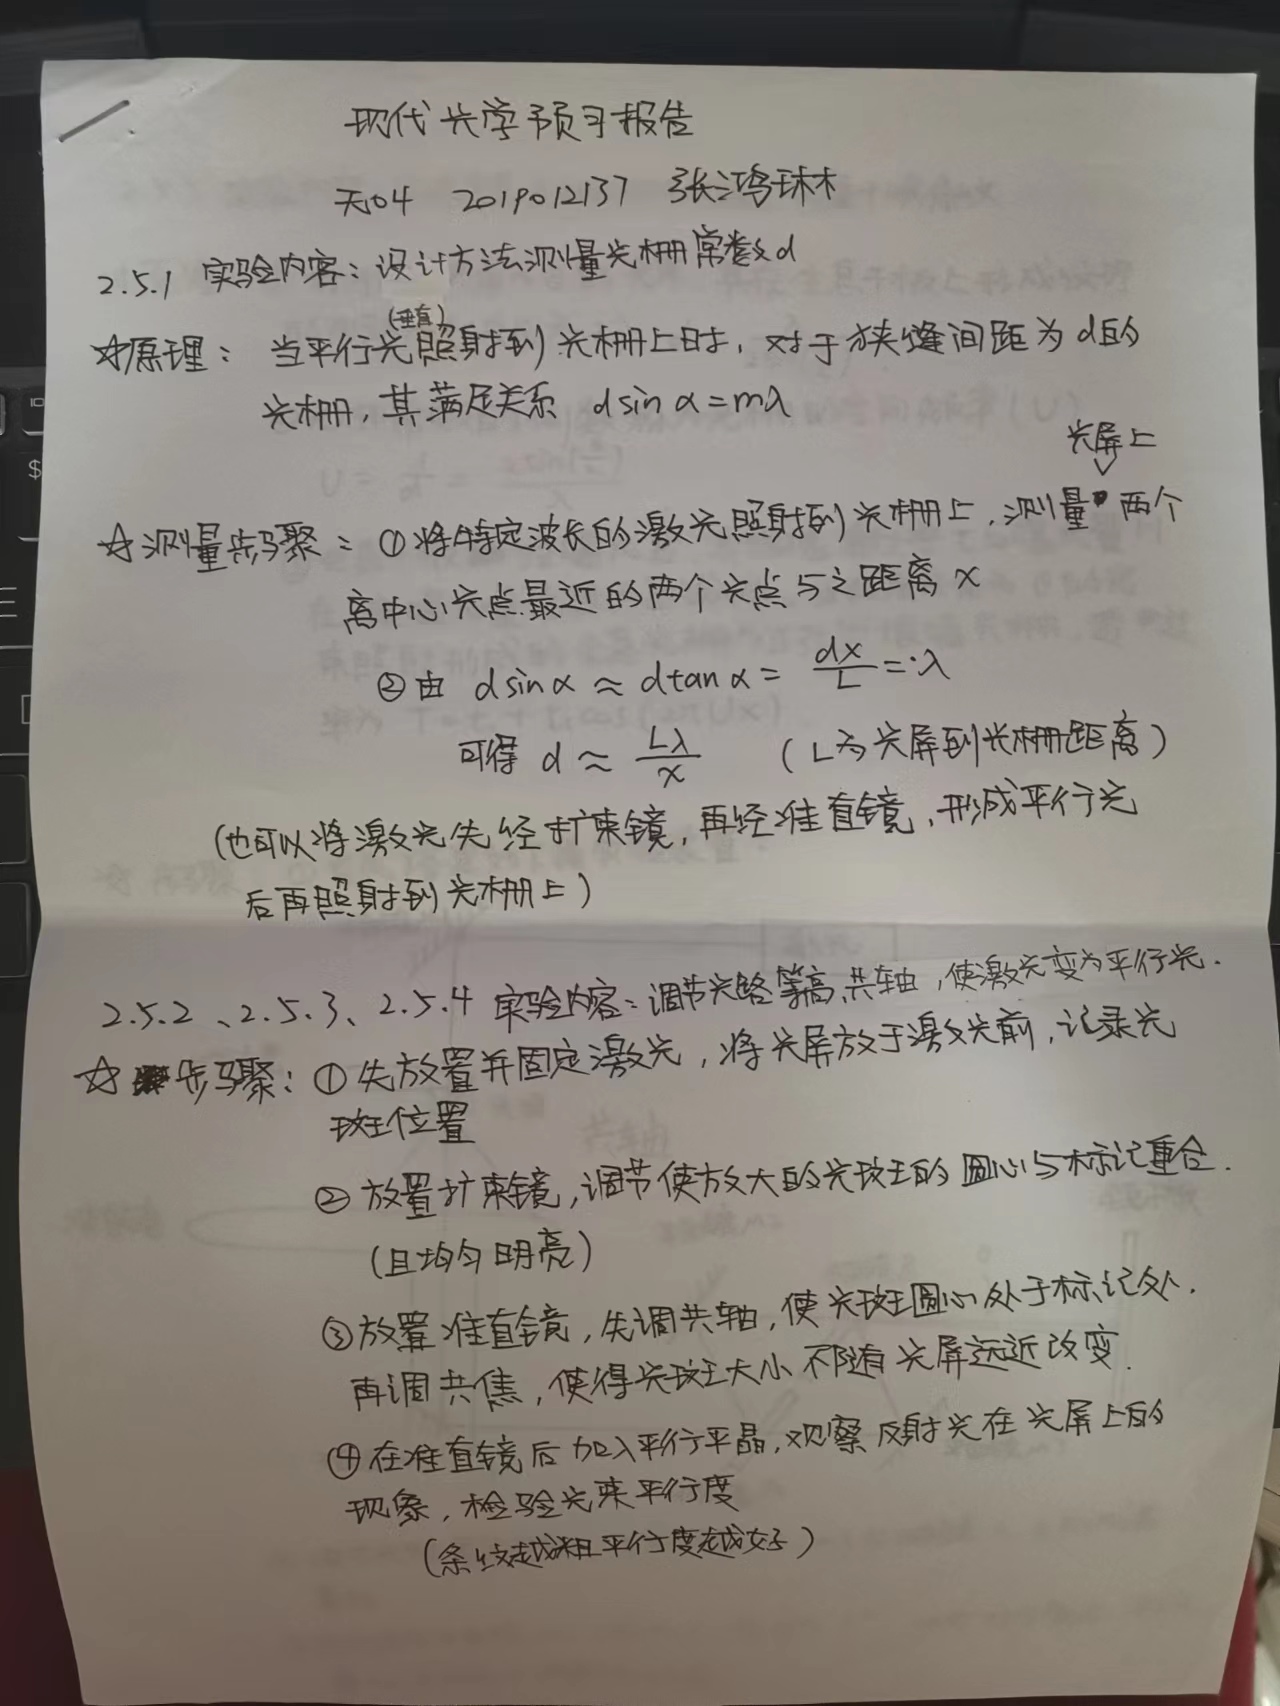 现代光学预习报告
无04 2019012137 张鸿琳
2.5.1 实验内容：设计方法测量光栅常数d
☆原理：当平行光(垂直)照射到光栅上时，对于狭缝间距为d的
光栅，其满足关系 dsinα=mλ
光屏上
☆测量步骤：①将特定波长的激光照射到光栅上，测量两个
离中心光点最近的两个光点与之距离x
②由 dsinα≈dtanα=dx/L=λ
可得 d≈Lλ/x （L为光屏到光栅距离）
（也可以将激光先经扩束镜，再经准直镜，形成平行光
后再照射到光栅上）
2.5.2、2.5.3、2.5.4 实验内容：调节光路等高共轴，使激光变为平行光.
☆步骤：①先放置并固定激光，将光屏放于激光前，记录光
斑位置
②放置扩束镜，调节使放大的光斑的圆心与标记重合.
（且均匀明亮）
③放置准直镜，先调共轴，使光斑圆心处于标记处.
再调共焦，使得光斑大小不随光屏远近改变.
④在准直镜后加入平行平晶，观察反射光在光屏上的
现象，检验光束平行度
（条纹越粗平行度越好）